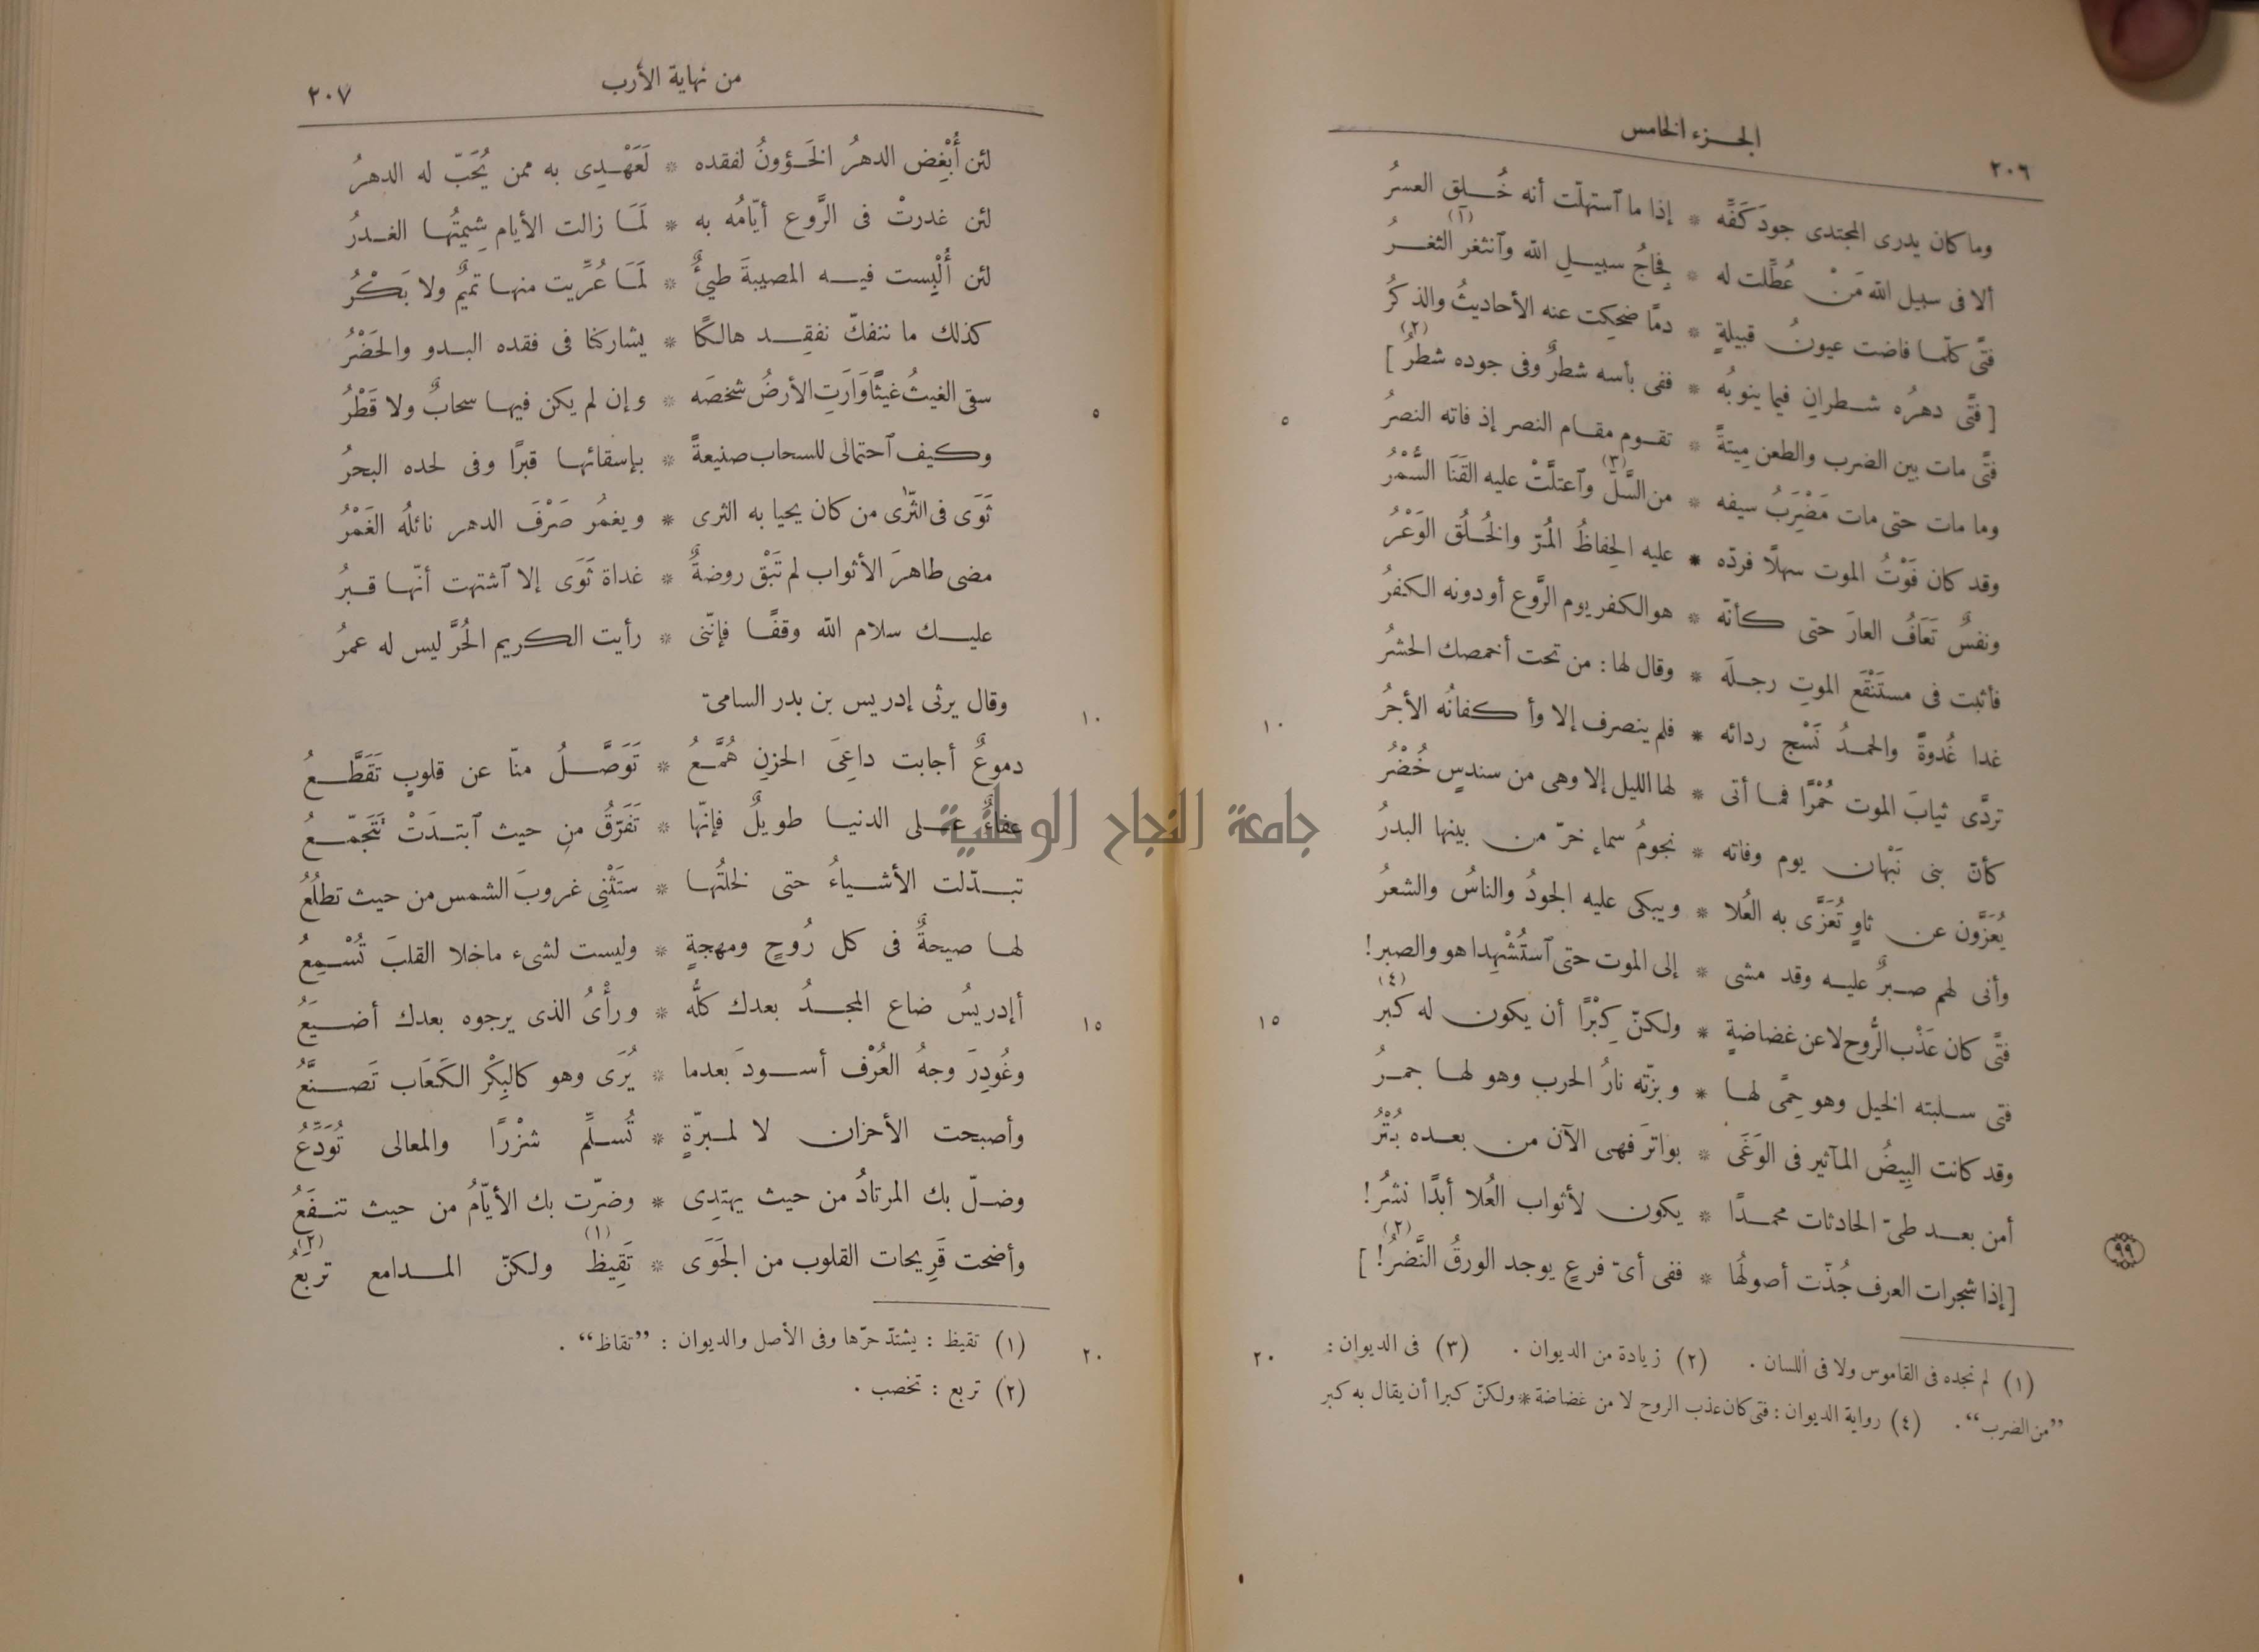 ٢٠٦
الجزء الخامس
وما كان يدرى المجتدى جودَ كَفِّه * إذا ما ٱستهلّت أنه خُلِق العسرُ
ألا فى سبيل الله مَنْ عُطِّلت له * فِجاجُ سبيلِ الله وٱنثغر (١) الثغرُ
فتًى كلّما فاضت عيونُ قبيلةٍ * دمًا ضحِكت عنه الأحاديثُ والذكرُ
[ فتًى دهرُه شطرانِ فيما ينوبُه * ففى بأسه شطرٌ وفى جوده شطرُ (٢) ]
فتًى مات بين الضرب والطعن مِيتةً * تقوم مقام النصر إذ فاته النصرُ ٥
وما مات حتى مات مَضْرِبُ سيفه * من السَّلِّ (٣) وٱعتلَّتْ عليه القَنَا السُّمْرُ
وقد كان فَوْتُ الموت سهلًا فردّه * عليه الحِفاظُ المُرّ والخُلُق الوَعْرُ
ونفسٌ تَعَافُ العارَ حتى كأنّه * هو الكفر يوم الرَّوع أو دونه الكفرُ
فأثبت فى مستَنْقَع الموتِ رجلَه * وقال لها : من تحت أخمصك الحشرُ
غدا غُدوةً والحمدُ نَسْج ردائه * فلم ينصرف إلا وأكفانُه الأجرُ ١٠
تردَّى ثيابَ الموت حُمْرًا فما أتى * لها الليل إلا وهى من سندسٍ خُضْرُ
كأنّ بنى نَبْهان يوم وفاته * نجومُ سماءٍ خرّ من بينها البدرُ
يُعَزَّون عن ثاوٍ تُعَزَّى به العُلا * ويبكى عليه الجودُ والناسُ والشعرُ
وأنى لهم صبرٌ عليه وقد مشى * إلى الموت حتى ٱستُشْهِدا هو والصبر !
فتًى كان عَذْب الرُّوح لا عن غضاضةٍ * ولكنّ كِبْرًا أن يكون له كبر (٤) ١٥
فتى سلبته الخيل وهو حِمًى لها * وبزّته نارُ الحرب وهو لها جمرُ
وقد كانت البِيضُ المآثير فى الوَغَى * بواترَ فهى الآن من بعده بُتْرُ
أمن بعد طىّ الحادثات محمدًا * يكون لأثواب العُلا أبدًا نشرُ !
[ إذا شجرات العرف جُذّت أصولُها * ففى أىّ فرعٍ يوجد الورقُ النَّضرُ ! (٢) ]
٩٩
(١) لم نجده فى القاموس ولا فى اللسان . (٢) زيادة من الديوان . (٣) فى الديوان : ٢٠
”من الضرب“ . (٤) رواية الديوان : فتى كان عذب الروح لا من غضاضة * ولكنّ كبرا أن يقال به كبر
من نهاية الأرب
٢٠٧
لئن أُبْغِض الدهرُ الخَؤونُ لفقده * لَعَهْدِى به ممن يُحَبّ له الدهرُ
لئن غدرتْ فى الرَّوع أيّامُه به * لَمَا زالت الأيام شِيمتُها الغدرُ
لئن أُلْبِست فيه المصيبةَ طيئٌ * لَمَا عُرِّيت منها تميمٌ ولا بَكْرُ
كذلك ما ننفكّ نفقِد هالكًا * يشاركنا فى فقده البدو والحَضْرُ
سقى الغيثُ غيثًا وَارَتِ الأرضُ شخصَه * وإن لم يكن فيها سحابٌ ولا قَطْرُ ٥
وكيف ٱحتمالى للسحاب صنيعةً * بإسقائها قبرًا وفى لحده البحرُ
ثَوَى فى الثّرى من كان يحيا به الثرى * ويغمُر صَرْفَ الدهر نائلُه الغَمْرُ
مضى طاهرَ الأثواب لم تَبْق روضةٌ * غداة ثَوَى إلا ٱشتهت أنّها قبرُ
عليك سلام الله وقفًا فإنّنى * رأيت الكريم الحُرَّ ليس له عمرُ
وقال يرثى إدريس بن بدر السامىّ ١٠
دموعٌ أجابت داعِىَ الحزنِ هُمَّعُ * تَوَصَّلُ منّا عن قلوبٍ تَقَطَّعُ
عفاءٌ على الدنيا طويلٌ فإنّها * تَفَرَّقُ مِن حيث ٱبتدَتْ تَتَجمّعُ
تبدّلت الأشياءُ حتى لخلتُها * ستَثْنِى غروبَ الشمس من حيث تطلُعُ
لها صيحةٌ فى كل رُوحٍ ومهجةٍ * وليست لشىء ما خلا القلبَ تُسْمِعُ
أإدريسُ ضاع المجدُ بعدك كلُّه * ورأْىُ الذى يرجوه بعدك أضيَعُ ١٥
وغُودِرَ وجهُ العُرْف أسودَ بعدما * يُرَى وهو كالبِكْر الكَعَاب تَصنَّعُ
وأصبحت الأحزان لا لمبرّةٍ * تُسلِّم شَزْرًا والمعالى تُوَدَّعُ
وضلّ بك المرتادُ من حيث يهتدِى * وضرّت بك الأيّامُ من حيث تنفَعُ
وأضحت قَرِيحات القلوب من الجَوَى * تَقِيظ (١) ولكنّ المدامع تربَعُ (٢)
(١) تقيظ : يشتدّ حرّها وفى الأصل والديوان : ”تقاظ“ . ٢٠
(٢) تربع : تخصب .
جامعة النجاح الوطنية